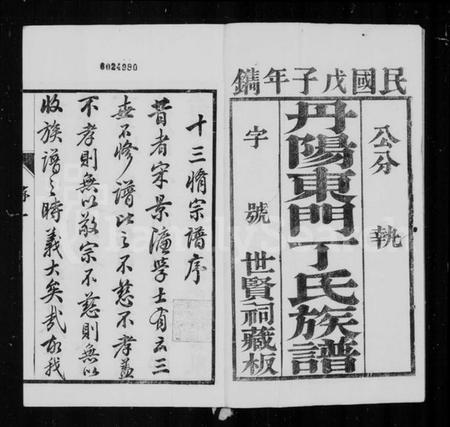 6024980
民國戊子年鐫
公分 執
丹陽東門丁氏族譜
字 號
世賢祠藏板
十三脩宗譜序
昔者宋景濂學士有云三
世不修譜比之不慈不孝蓋
不孝則無以敬宗不慈則無以
收族譜之時義大矣哉故我
序 一